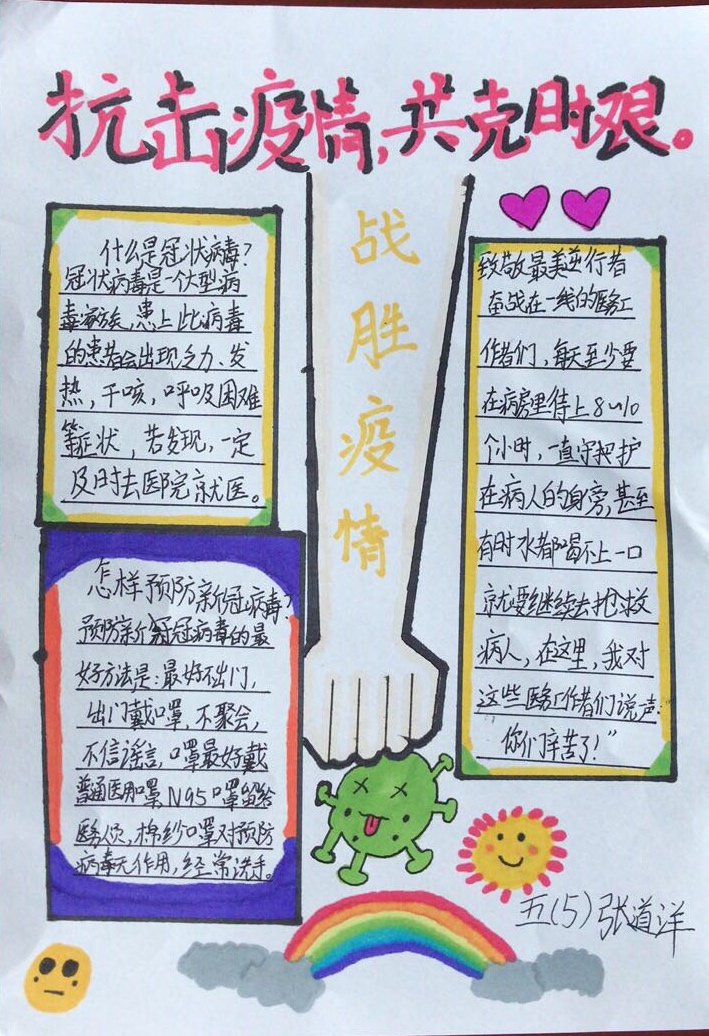 抗击疫情,共克时艰。
什么是冠状病毒?
冠状病毒是一个大型病
毒家族,患上此病毒
的患者会出现乏力、发
热,干咳,呼吸困难
等症状,若发现,一定
及时去医院就医。
战
胜
疫
情
致敬最美逆行者
奋战在一线的医务工
作者们,每天至少要
在病房里待上8~10
个小时,一直守把护
在病人的身旁,甚至
有时水都喝不上一口
就要继续去抢救
病人,在这里,我对
这些医务工作者们说声:
你们辛苦了!”
怎样预防新冠病毒?
预防新冠病毒的最
好方法是:最好不出门,
出门戴口罩,不聚会,
不信谣言,口罩最好戴
普通医用口罩,N95口罩留给
医务人员,棉纱口罩对预防
病毒无作用,经常洗手。
五(5)张道洋